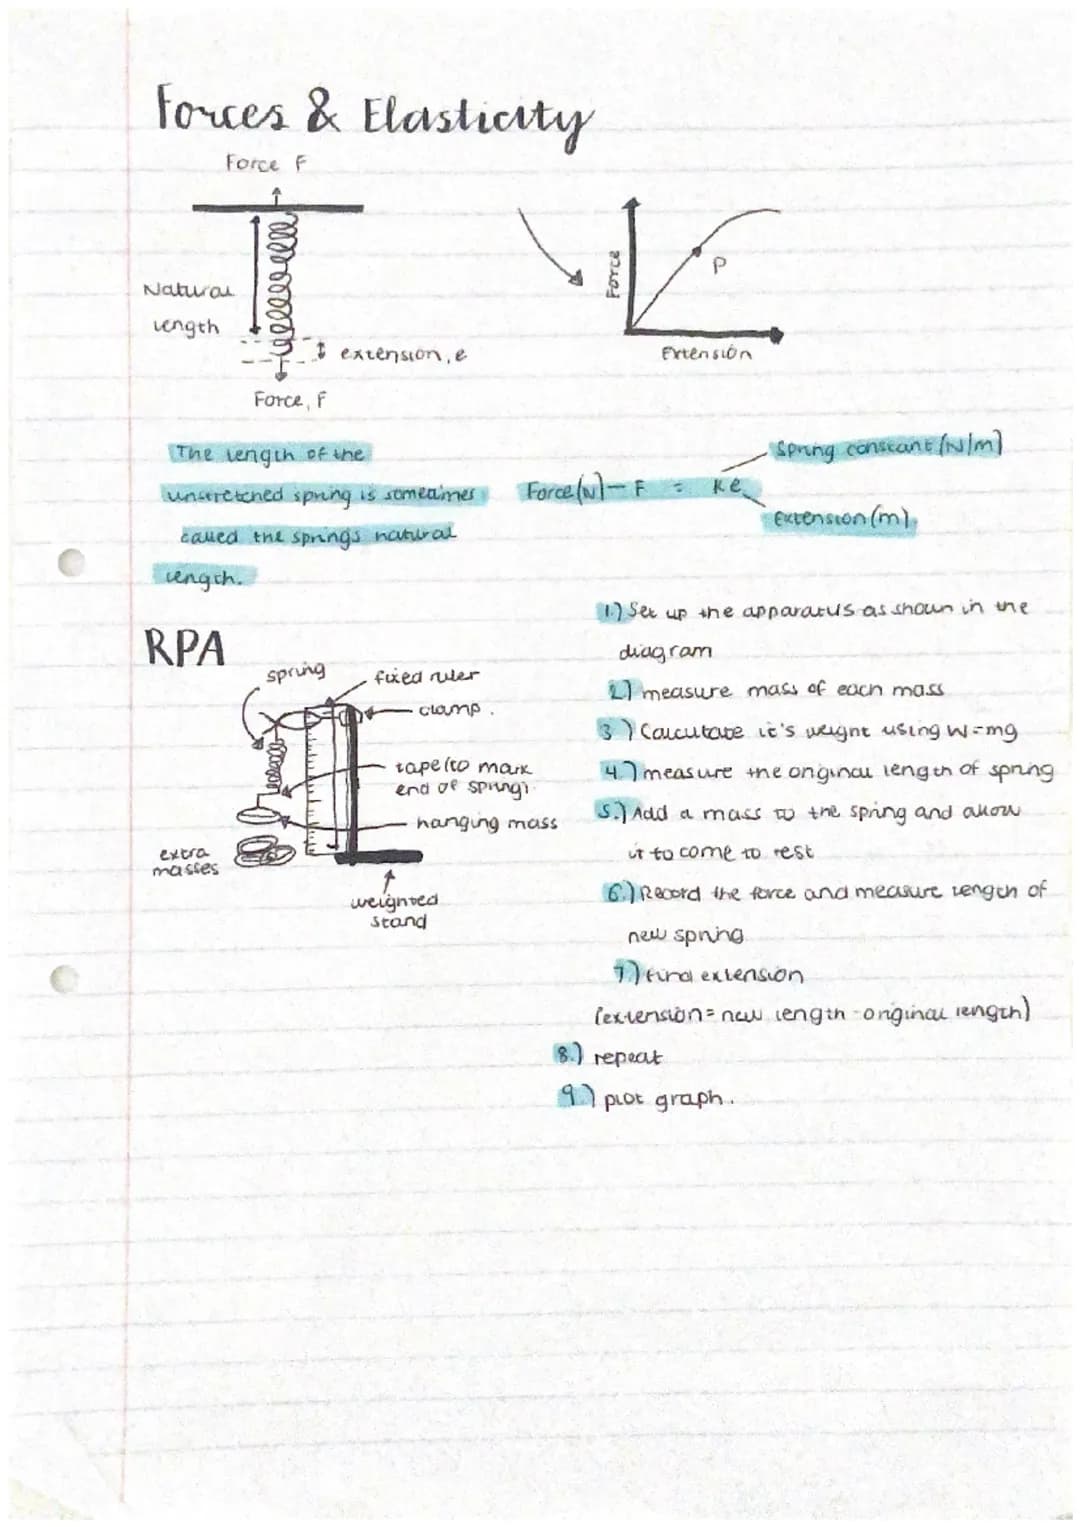 Forces & Elasticity
Force F
Natural
length
extension, e
Force, F
Force
P
Extension
The length of the
unstretched spring is sometimes
called the springs natural
length.
Spring constant (N/m)
Force (N) — F = Ke
Extension (m).
RPA
spring
fixed ruler
clamp.
tape (to mark
end of spring).
hanging mass
extra
masses
weighted
stand
1.) Set up the apparatus as shown in the
diagram
2.) measure mass of each mass
3.) Calculate it's weight using W=mg
4.) measure the original length of spring
5.) Add a mass to the spring and allow
it to come to rest
6.) Record the force and measure length of
new spring
7.) find extension
(extension = new length - original length)
8.) repeat
9.) plot graph.